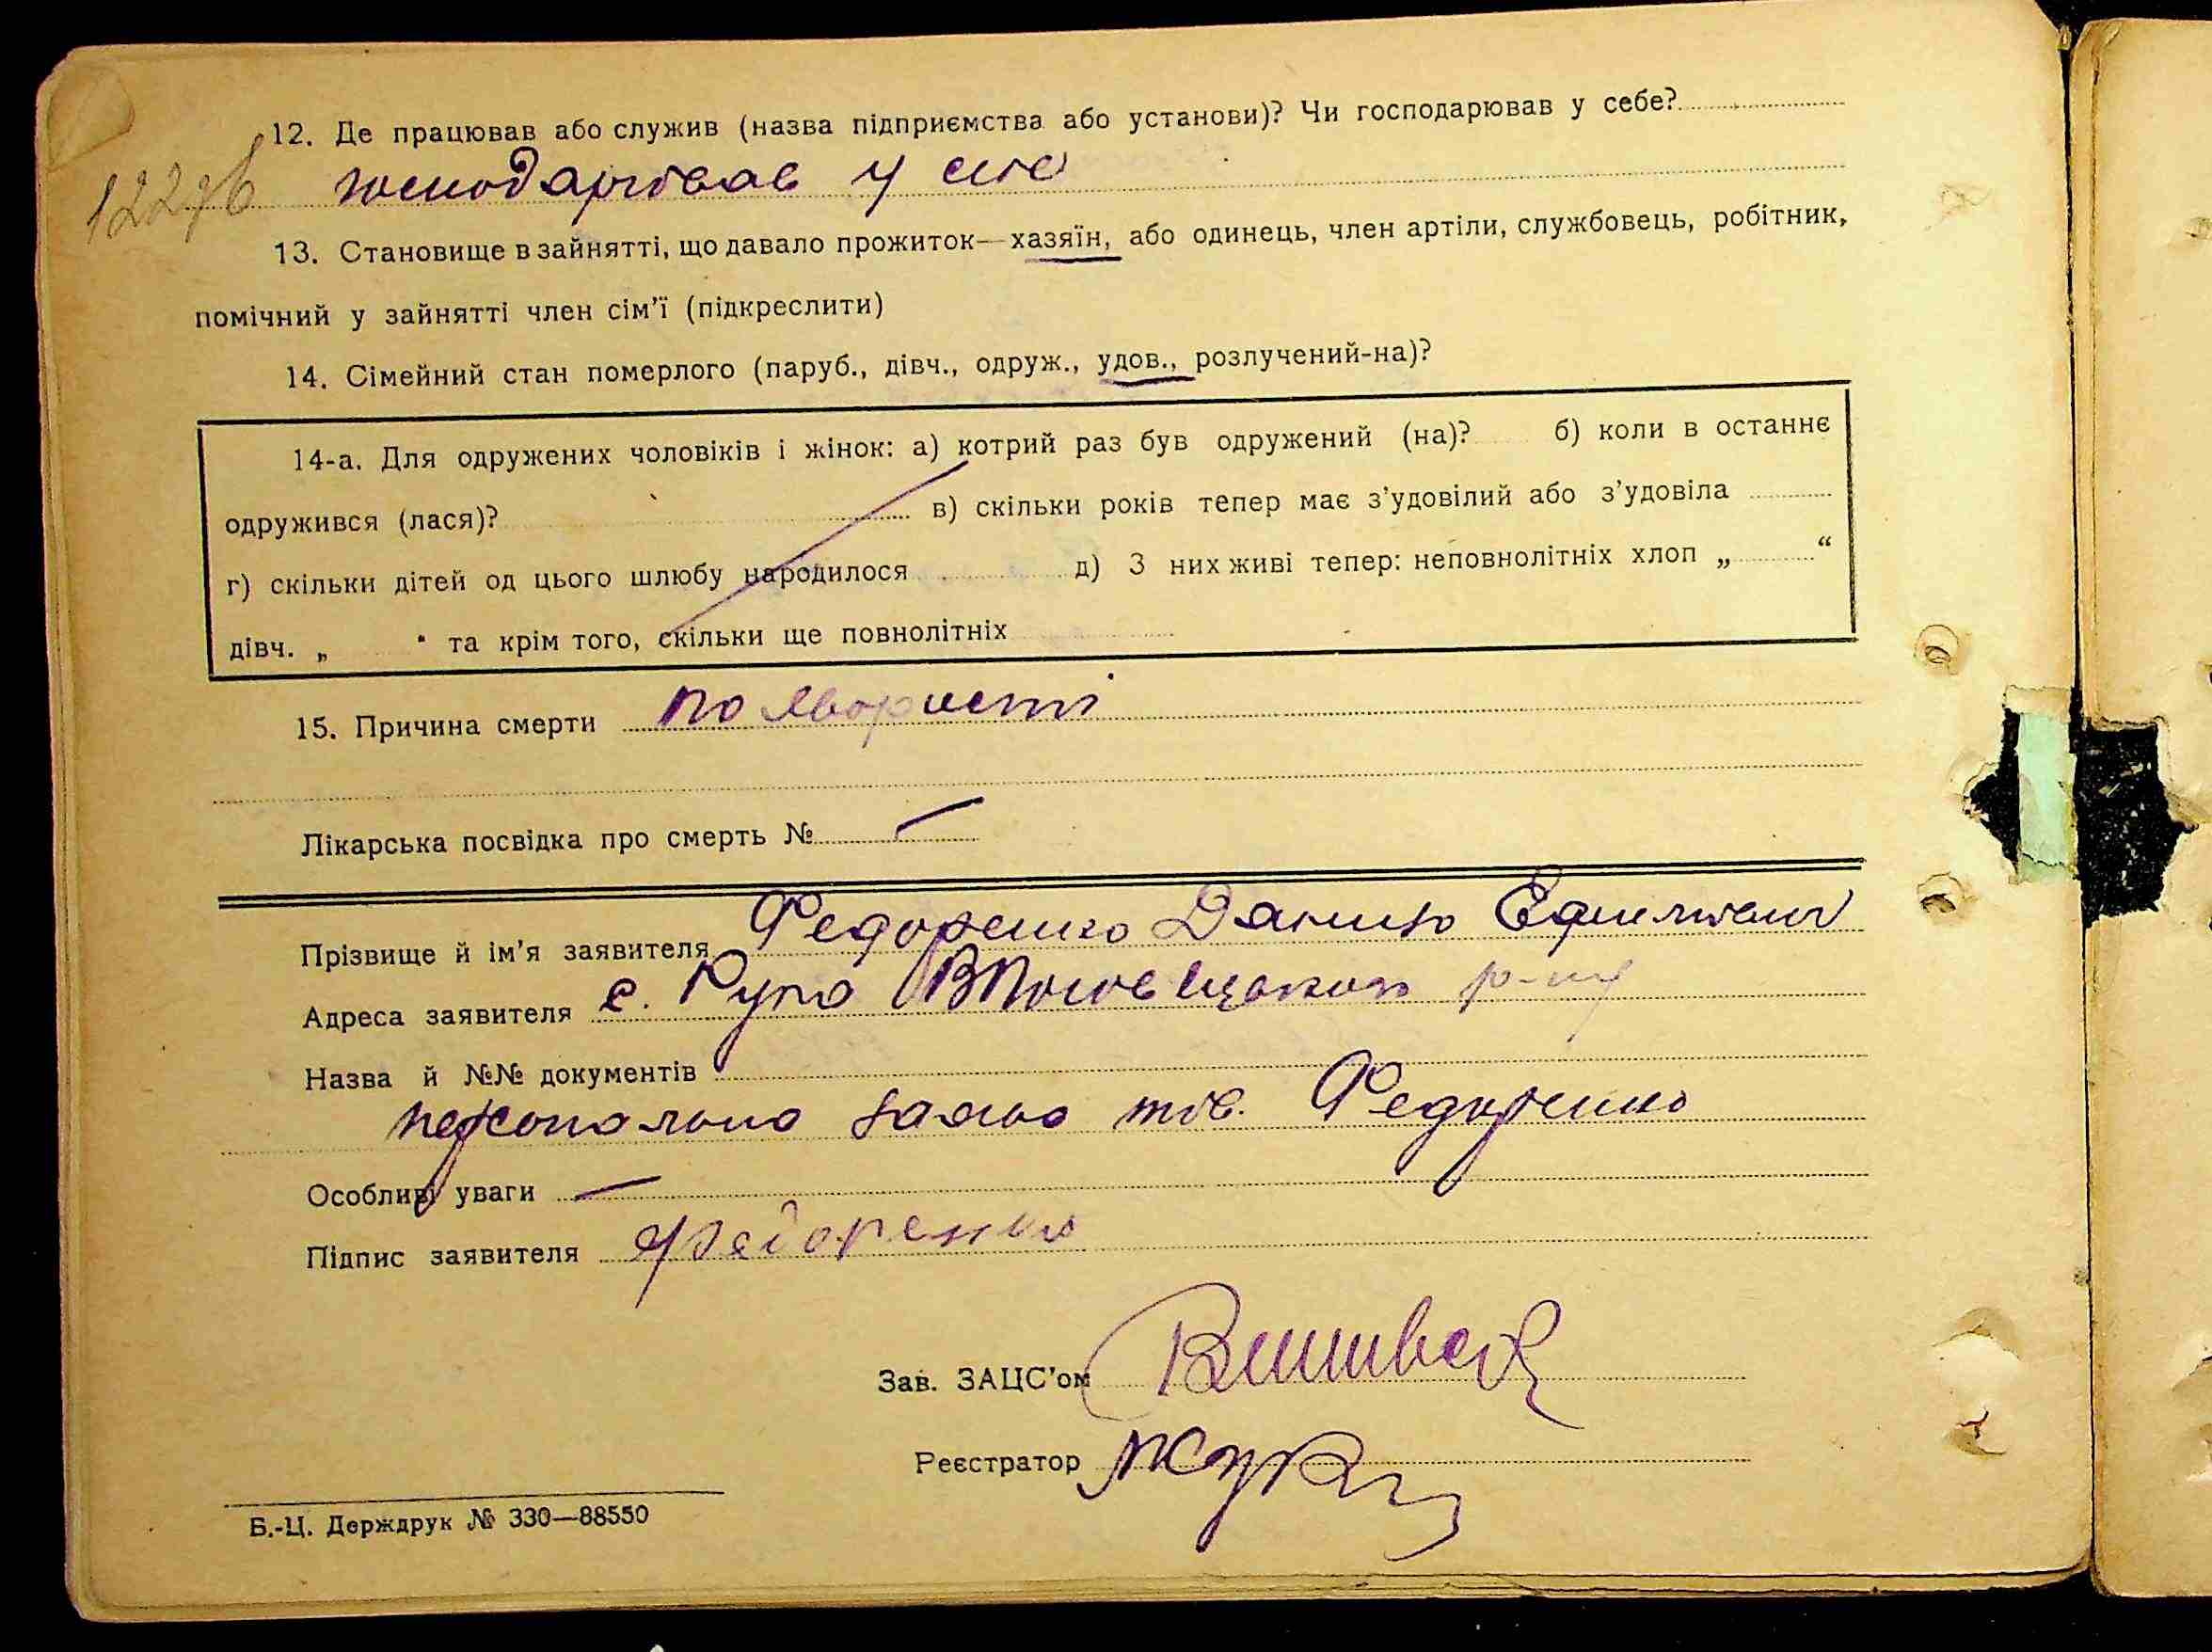 12. Де працював або служив (назва підприємства або установи)? Чи господарював у себе?
122зв господарював у себе
13. Становище в зайнятті, що давало прожиток—хазяїн, або одинець, член артіли, службовець, робітник,
помічний у зайнятті член сім'ї (підкреслити)
14. Сімейний стан померлого (паруб., дівч., одруж., удов., розлучений-на)?
14-а. Для одружених чоловіків і жінок: а) котрий раз був одружений (на)? б) коли в останнє
одружився (лася)? в) скільки років тепер має з'удовілий або з'удовіла
г) скільки дітей од цього шлюбу народилося д) З них живі тепер: неповнолітніх хлоп „ “
дівч. „ “ та крім того, скільки ще повнолітніх
15. Причина смерти по
Лікарська посвідка про смерть № —
Прізвище й ім'я заявителя Федоренко Данило
Адреса заявителя с. Руда р-ну
Назва й №№ документів
персонально заяво тов. Федоренко
Особливі уваги —
Підпис заявителя Федоренко
Зав. ЗАЦС'ом
Реєстратор
Б.-Ц. Держдрук № 330—88550